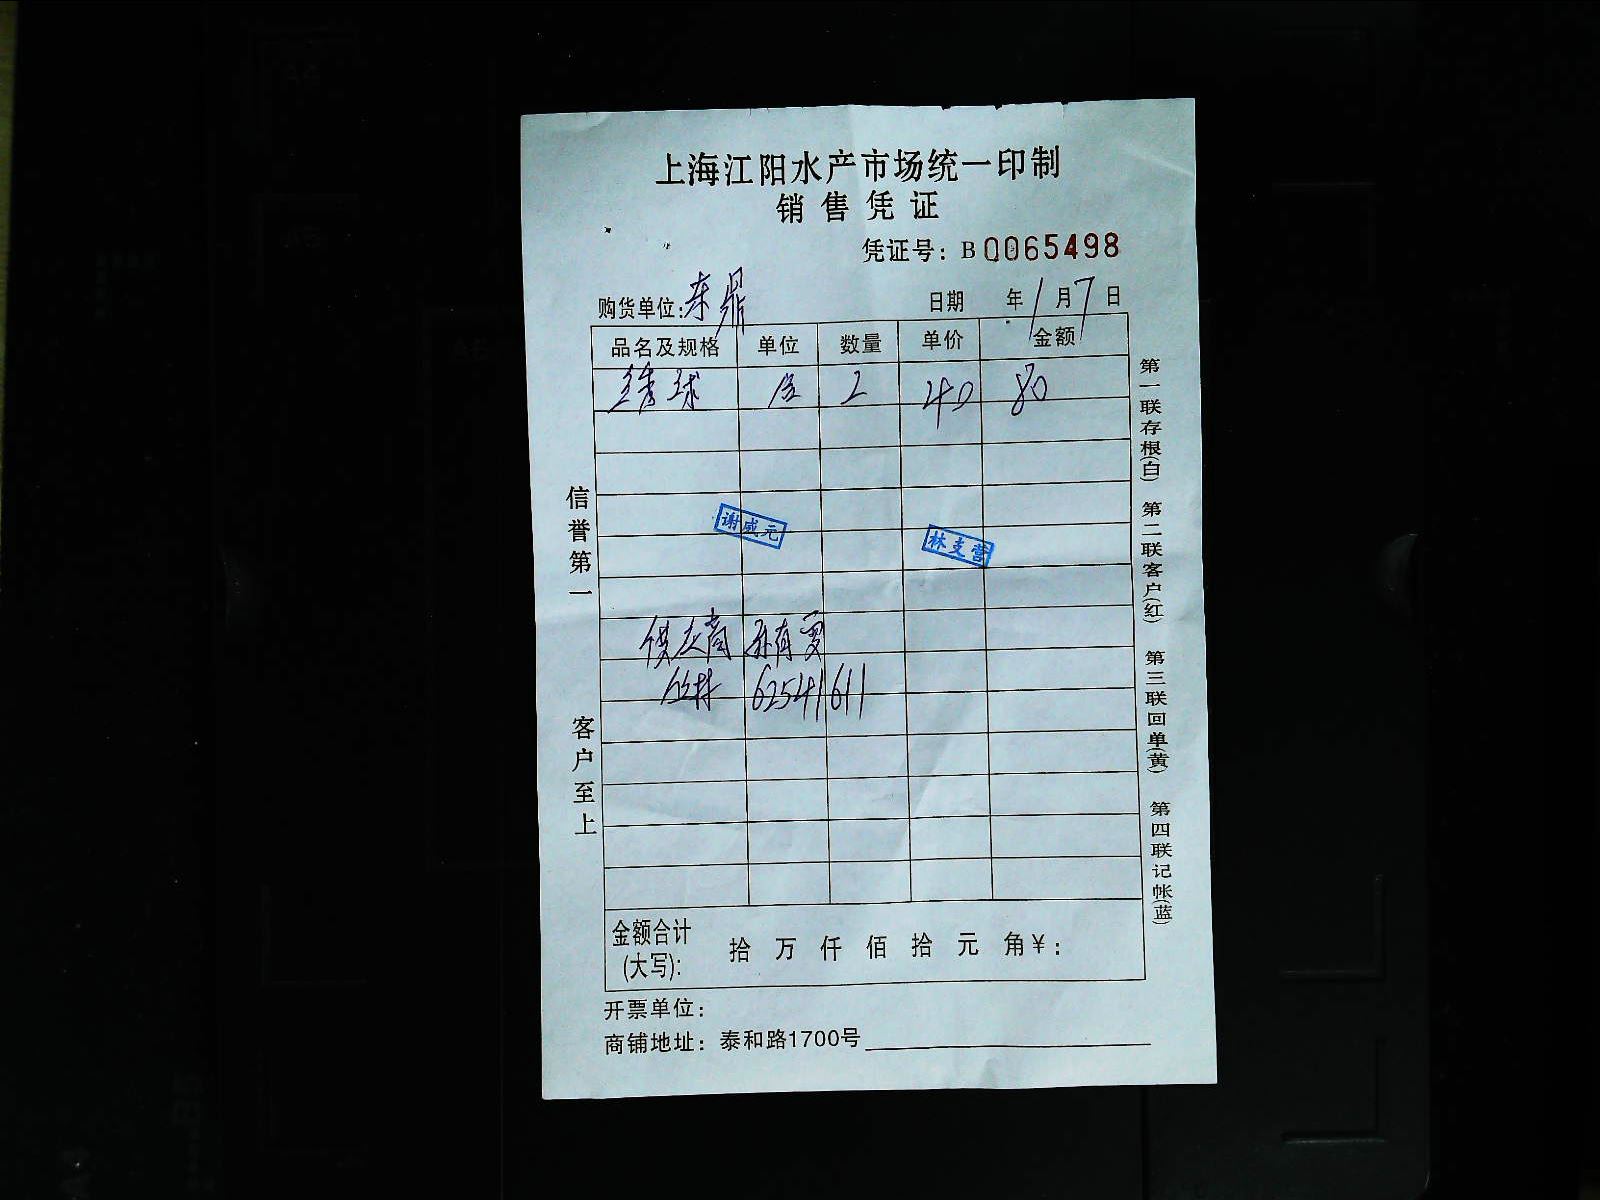 上海江阳水产市场统一印制
销售凭证
凭证号：B0065498
购货单位：东鼎 日期 年1月7日
品名及规格 单位 数量 单价 金额
绣球 2 40 80
谢咸元 林支营
供应商 孙有雯
62541611
金额合计(大写)： 拾 万 仟 佰 拾 元 角￥：
开票单位：
商铺地址：泰和路1700号
信誉第一 客户至上
第一联存根(白) 第二联客户(红) 第三联回单(黄) 第四联记帐(蓝)